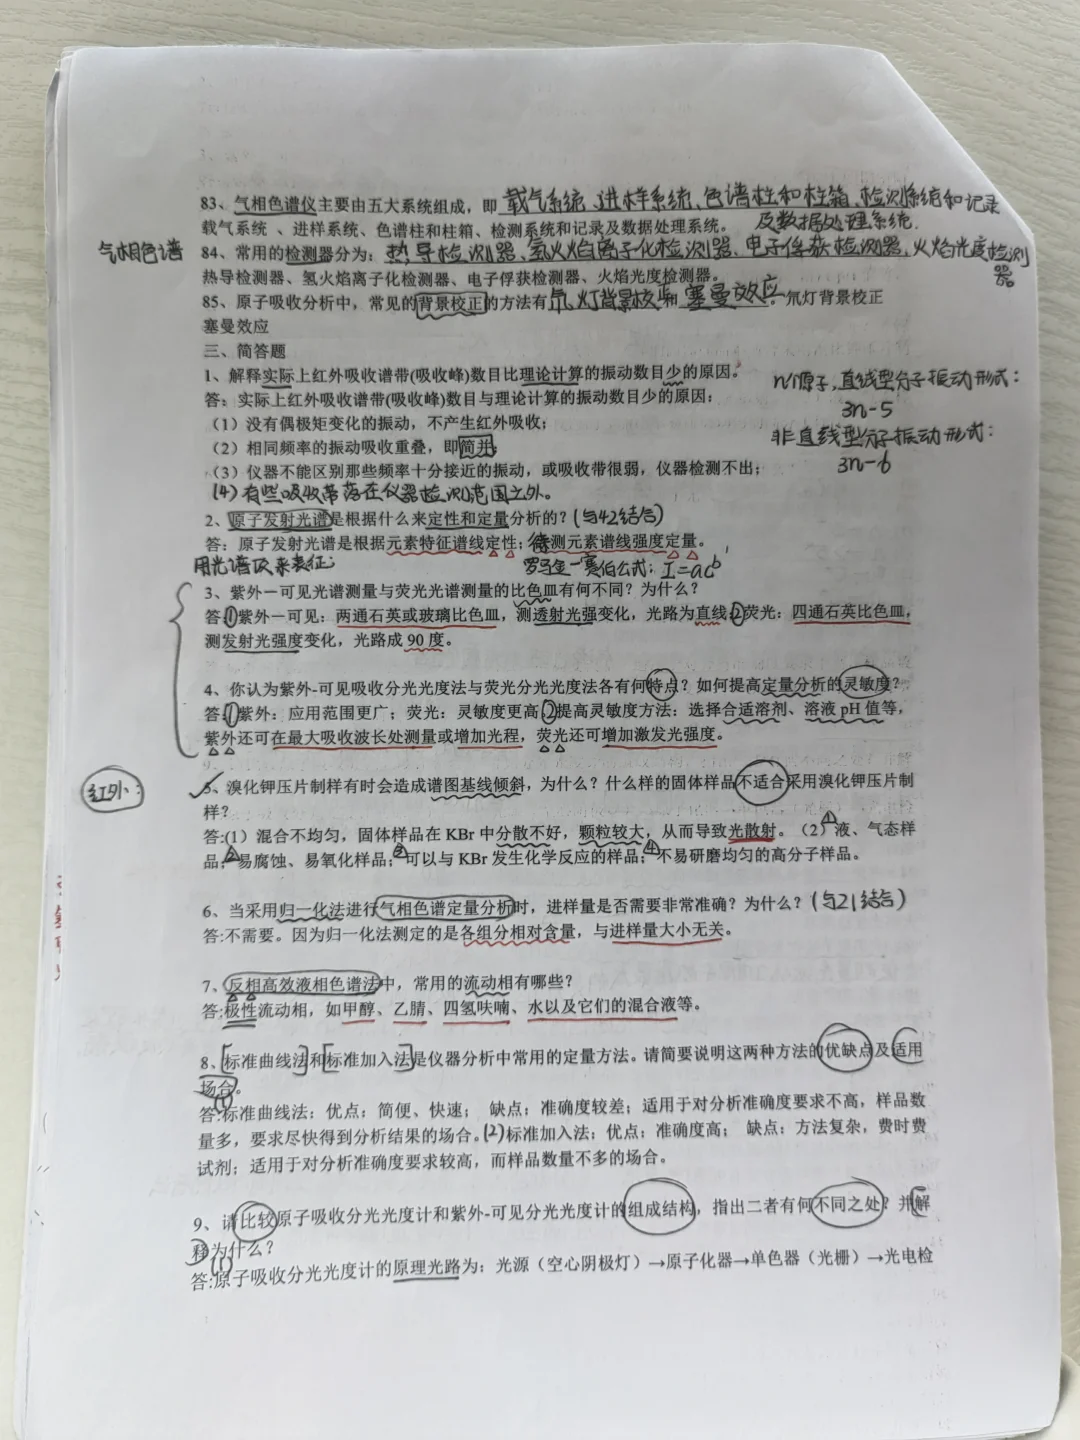 83、气相色谱仪主要由五大系统组成，即 载气系统、进样系统、色谱柱和柱箱、检测系统和记录
载气系统 、进样系统、色谱柱和柱箱、检测系统和记录及数据处理系统。 及数据处理系统.
气相色谱
84、常用的检测器分为：热导检测器、氢火焰离子化检测器、电子俘获检测器、火焰光度检测
器
热导检测器、氢火焰离子化检测器、电子俘获检测器、火焰光度检测器。
85、原子吸收分析中，常见的背景校正的方法有氘灯背景校 和 塞曼效应。氘灯背景校正
塞曼效应
三、简答题
1、解释实际上红外吸收谱带(吸收峰)数目比理论计算的振动数目少的原因。
n个原子，直线型分子振动形式：
答：实际上红外吸收谱带(吸收峰)数目与理论计算的振动数目少的原因：
3n-5
（1）没有偶极矩变化的振动，不产生红外吸收；
非直线型分子振动形式：
（2）相同频率的振动吸收重叠，即简并；
3n-6
（3）仪器不能区别那些频率十分接近的振动，或吸收带很弱，仪器检测不出；
(4)有些吸收带落在仪器检测范围之外。
2、原子发射光谱是根据什么来定性和定量分析的？(与42结合)
答：原子发射光谱是根据元素特征谱线定性；待测元素谱线强度定量。
用光谱仪来表征；
罗马金－赛伯公式：I=acᵇ
3、紫外－可见光谱测量与荧光光谱测量的比色皿有何不同？为什么？
答：①紫外－可见：两通石英或玻璃比色皿，测透射光强变化，光路为直线；②荧光：四通石英比色皿，
测发射光强度变化，光路成 90 度。
4、你认为紫外-可见吸收分光光度法与荧光分光光度法各有何特点？如何提高定量分析的灵敏度？
答：①紫外：应用范围更广；荧光：灵敏度更高。②提高灵敏度方法：选择合适溶剂、溶液 pH 值等，
紫外还可在最大吸收波长处测量或增加光程，荧光还可增加激发光强度。
红外：
5、溴化钾压片制样有时会造成谱图基线倾斜，为什么？什么样的固体样品不适合采用溴化钾压片制
样？
答:(1）混合不均匀，固体样品在 KBr 中分散不好，颗粒较大，从而导致光散射。（2）①液、气态样
品；②易腐蚀、易氧化样品；③可以与 KBr 发生化学反应的样品；④不易研磨均匀的高分子样品。
6、当采用归一化法进行气相色谱定量分析时，进样量是否需要非常准确？为什么？(与21结合)
答:不需要。因为归一化法测定的是各组分相对含量，与进样量大小无关。
7、反相高效液相色谱法中，常用的流动相有哪些？
答:极性流动相，如甲醇、乙腈、四氢呋喃、水以及它们的混合液等。
8、[标准曲线法]和[标准加入法]是仪器分析中常用的定量方法。请简要说明这两种方法的优缺点及适用
场合。
答:(1)标准曲线法：优点：简便、快速； 缺点：准确度较差；适用于对分析准确度要求不高，样品数
量多，要求尽快得到分析结果的场合。(2)标准加入法：优点：准确度高； 缺点：方法复杂，费时费
试剂；适用于对分析准确度要求较高，而样品数量不多的场合。
9、请比较原子吸收分光光度计和紫外-可见分光光度计的组成结构，指出二者有何不同之处？并解
释为什么？
答:(1)原子吸收分光光度计的原理光路为：光源（空心阴极灯）→原子化器→单色器（光栅）→光电检